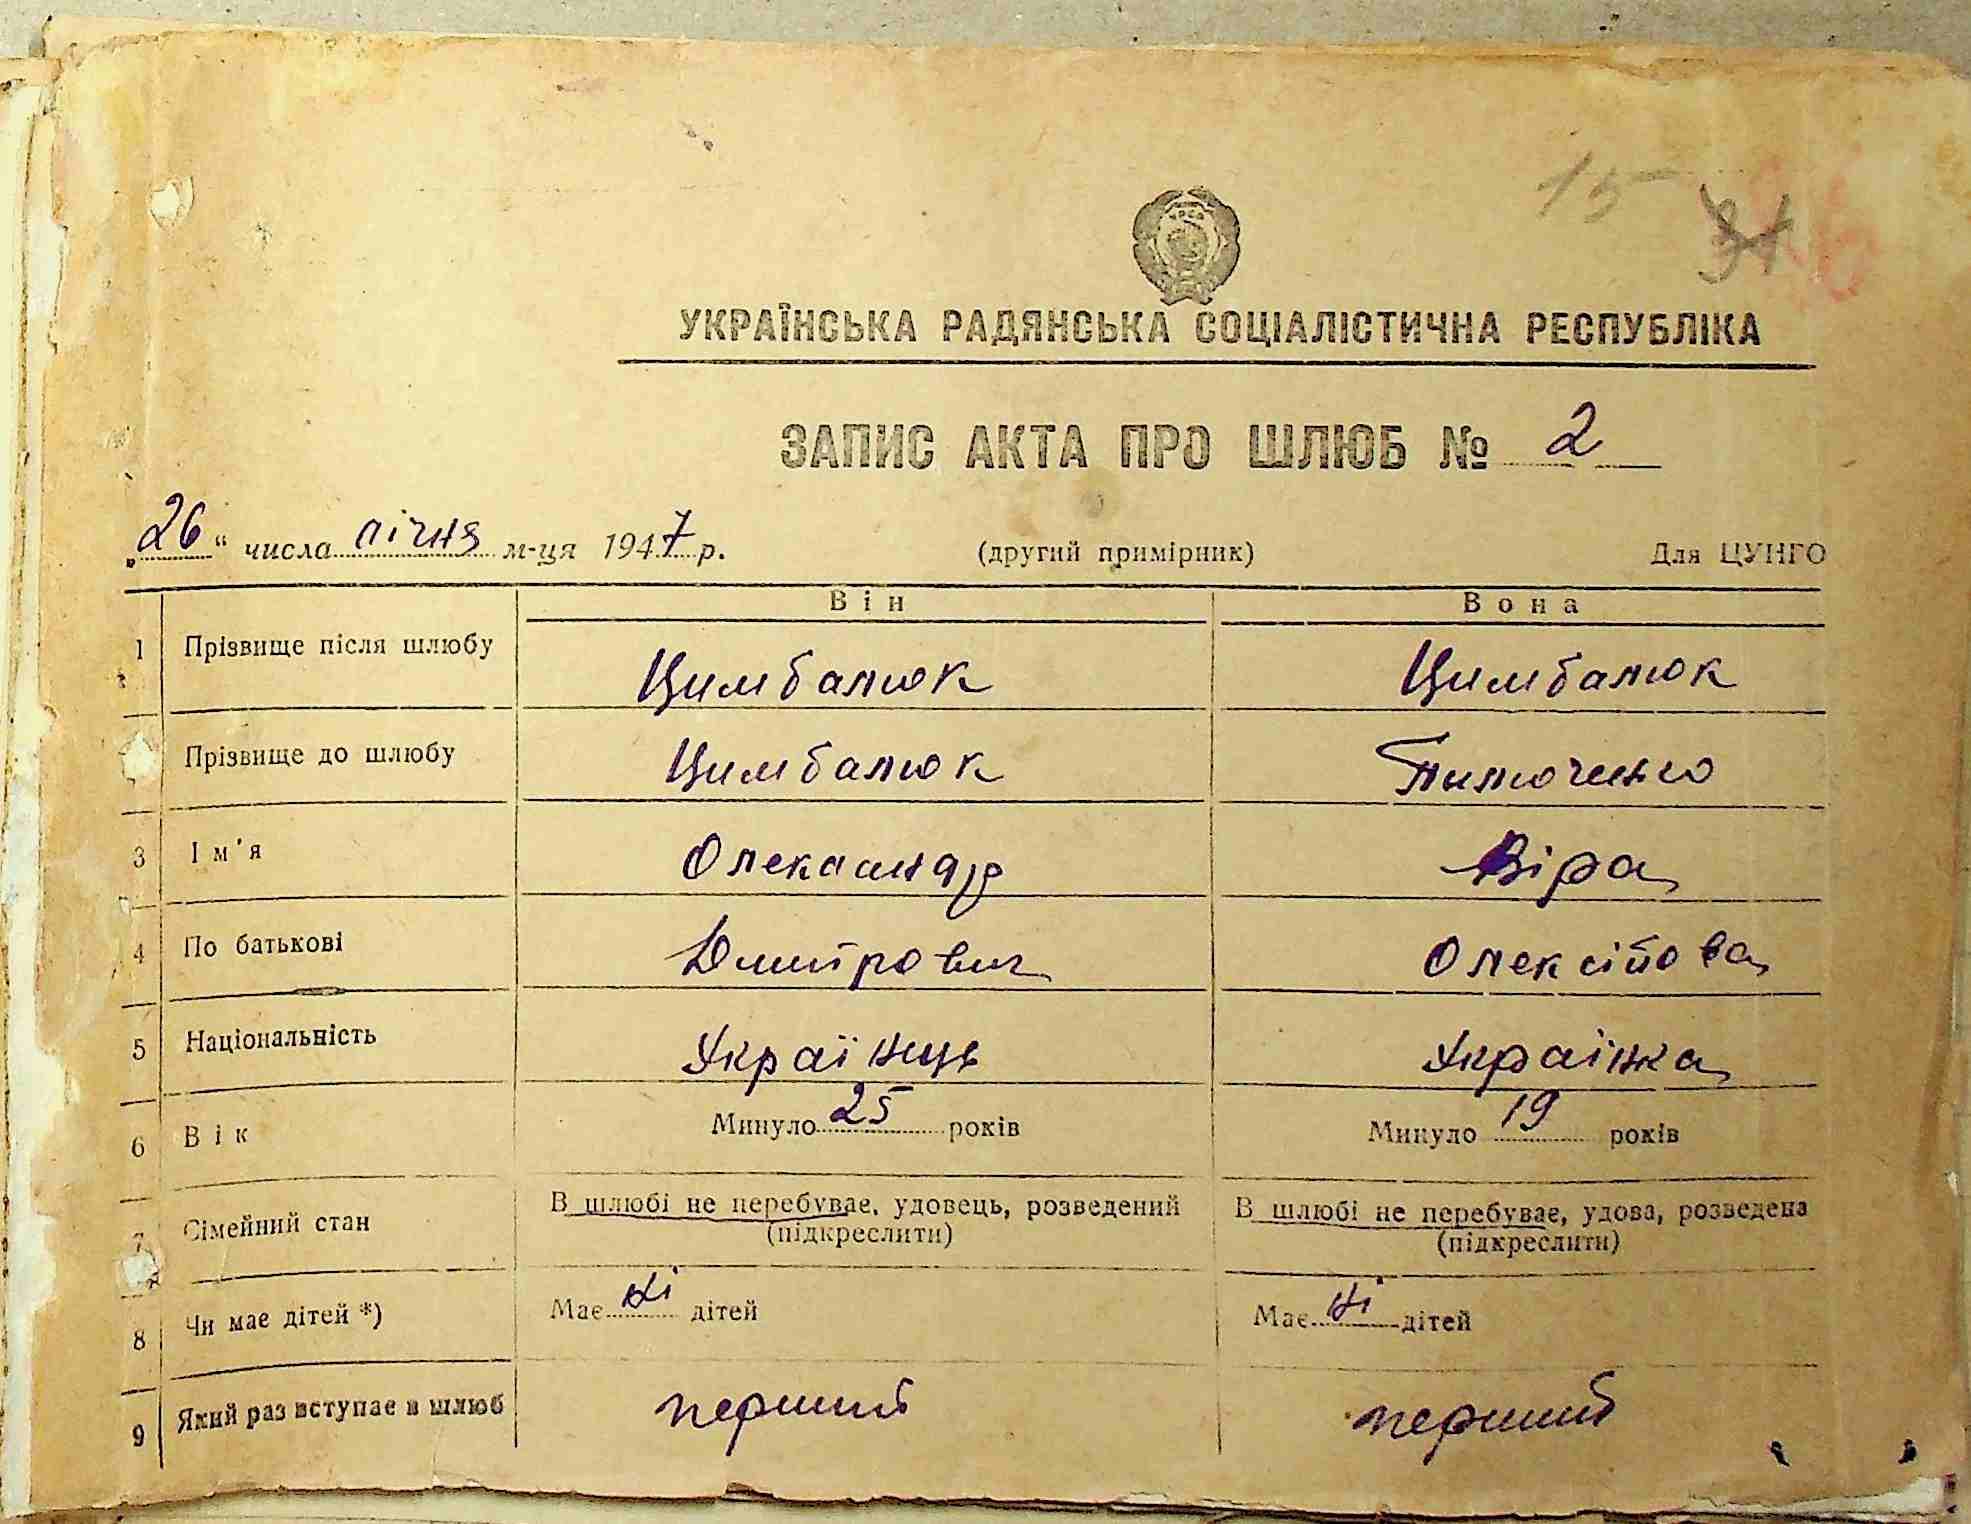 15 31
УКРАЇНСЬКА РАДЯНСЬКА СОЦІАЛІСТИЧНА РЕСПУБЛІКА
ЗАПИС АКТА ПРО ШЛЮБ № 2
„26“ числа січня м-ця 1947 р. (другий примірник) Для ЦУНГО
Він Вона
1 Прізвище після шлюбу Цимбалюк Цимбалюк
Прізвище до шлюбу Цимбалюк
3 Ім'я Олександр Віра
4 По батькові Дмитрович Олексійова
5 Національність Українць Українка
6 Вік Минуло 25 років Минуло 19 років
7 Сімейний стан В шлюбі не перебуває, удовець, розведений В шлюбі не перебуває, удова, розведена
(підкреслити) (підкреслити)
8 Чи має дітей *) Має ні дітей Має ні дітей
9 Який раз вступає в шлюб перший перший